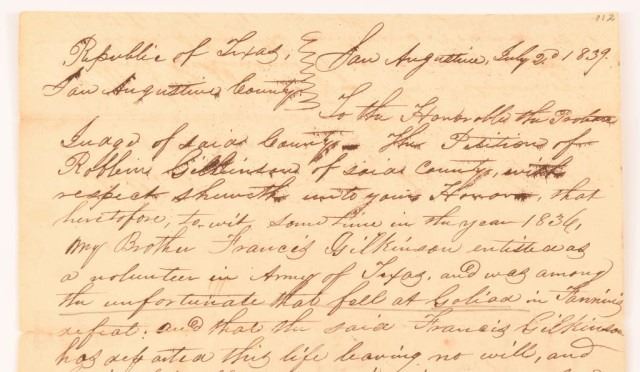 112
Republic of Texas, San Augustine, July 2d 1839.
San Augustine County
To the Honorable the Probate
Judge of said County — The Petition of
Robbins Gilkinson of said County, with
respect sheweth unto your Honor, that
heretofore, to-wit some time in the year 1836,
my Brother Francis Gilkinson entisted as
a volunteer in Army of Texas, and was among
the unfortunate that fell at Goliad in Fannins
defeat. and that the said Francis Gilkinson
has departed this life leaving no will, and